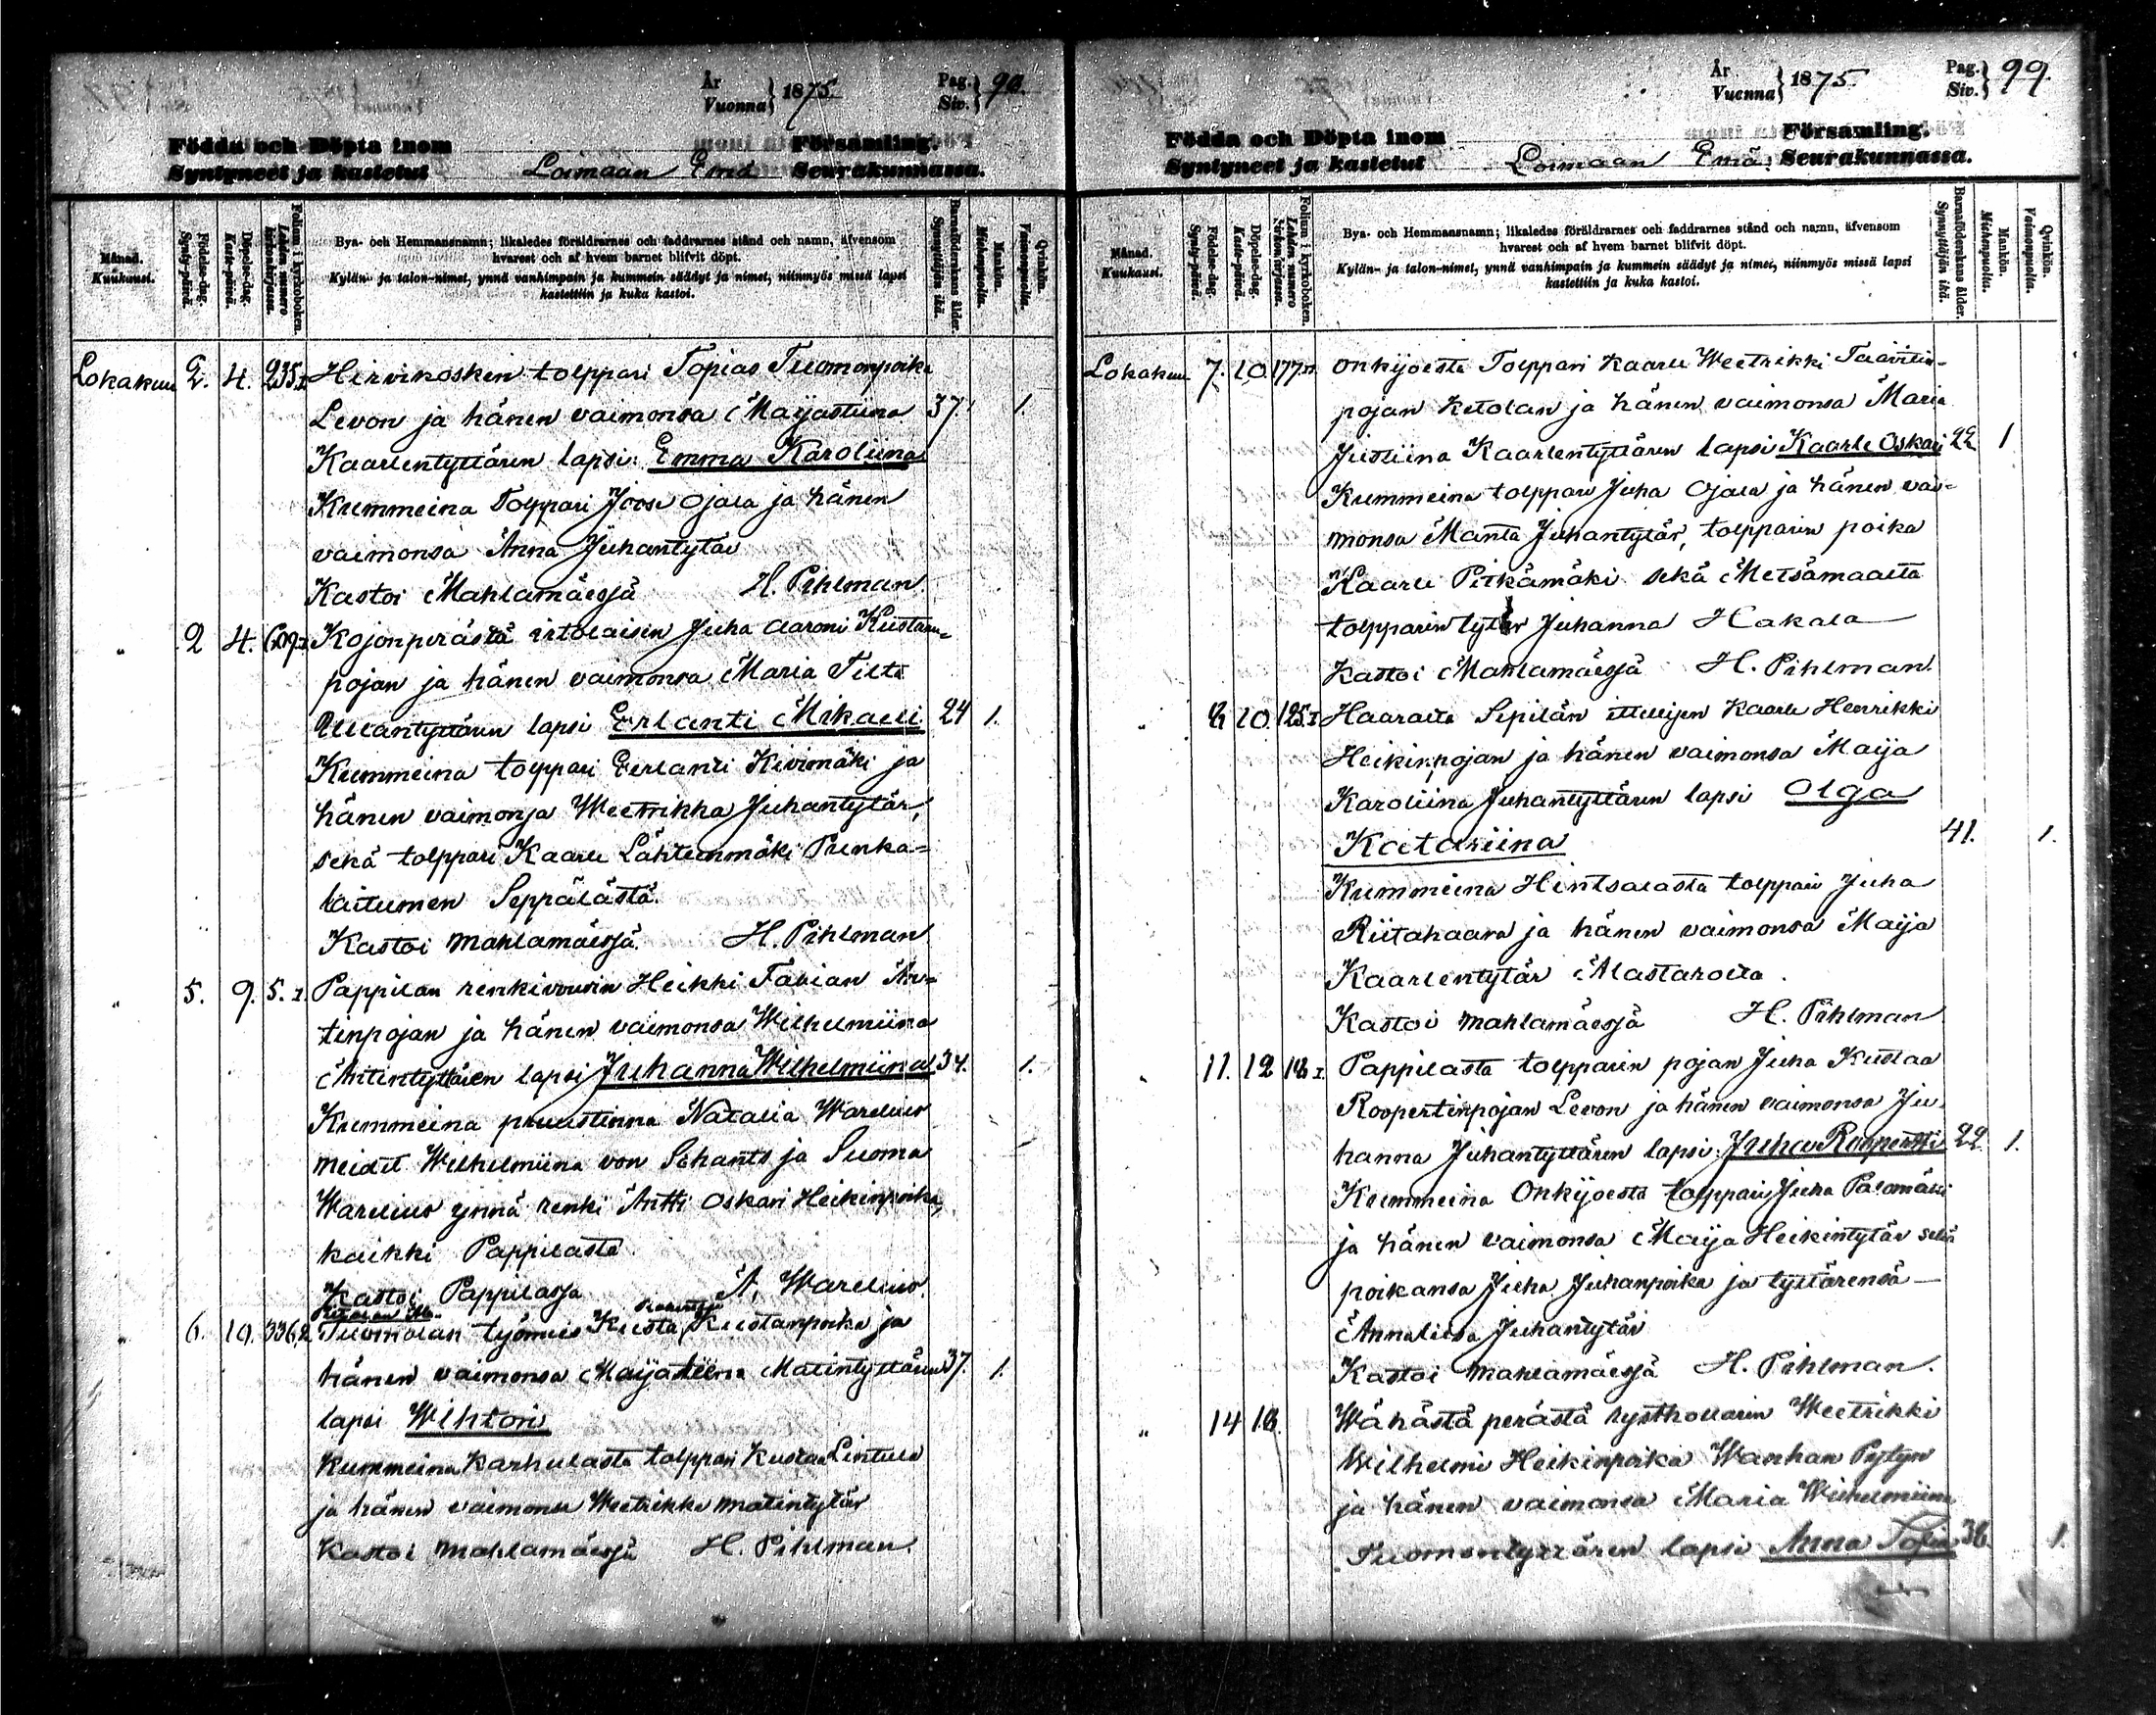 År
Vuonna } 1875.
Pag.
Siv. } 98.
Födda och Döpta inom
Församling.
Syntyneet ja kastetut Loimaan Emä Seurakunnassa.
Månad.
Kuukausi.
Födelse-dag.
Synty-päivä.
Döpelse-dag.
Kaste-päivä.
Folium i kyrkoboken.
Lehden numero
kirkonkirjassa.
Bya- och Hemmansnamn; likaledes föräldrarnes och faddrarnes stånd och namn, äfvensom
hvarest och af hvem barnet blifvit döpt.
Kylän- ja talon-nimet, ynnä vanhimpain ja kummein säädyt ja nimet, niinmyös missä lapsi
kastettiin ja kuka kastoi.
Barnaföderskans ålder.
Synnyttäjän ikä.
Mankön.
Miehenpuolta.
Qvinkön.
Vaimonpuolta.
Lokakuu 2. 4. 235.I Hirvikosken tolppari Topias Tuomonpoika
Levon ja hänen vaimonsa Maijastiina 37. 1.
Kaarlentyttären lapsi: Emma Karoliina
Kummeina Tolppari Joose Ojala ja hänen
vaimonsa Anna Juhantytär
Kastoi Mahlamäessä H. Pihlman
" 2 4. 609.I Kojonperästä irtolaisen Juha Aaroni Kustaan-
pojan ja hänen vaimonsa Maria Tilta
lapsi Erlanti Mikaeli 24 1.
Kummeina tolppari Eerlanti Kivimäki ja
hänen vaimonsa Weetrikka Juhantytär,
sekä tolppari Kaarle Lähteenmäki Prunka-
laitumen Seppälästä.
Kastoi Mahlamäessä. H. Pihlman
" 5. 9. 5. I. Pappilan renkivoudin Heikki Fabian An-
tinpojan ja hänen vaimonsa Wilhelmiina
Antintyttären lapsi Juhanna Wilhelmiina 34. 1.
Kummeina pruustinna Natalia Warelius
meidit Wilhelmiina von Schants ja Suoma
Warelius ynnä renki Antti Oskari Heikinpoika,
kaikki Pappilasta
Kastoi Pappilassa A. Warelius.
" 6. 10. 336.2 Tuomolan työmies Kusta Kustanpoika ja
hänen vaimonsa Maijastiina Matintyttären 37. 1.
lapsi Wihtori
Kummeina Karhulasta tolppari Kustaa Lintula
ja hänen vaimonsa Weetrikka Matintytär
Kastoi Mahlamäessä H. Pihlman.
År
Vuonna } 1875.
Pag.
Siv. } 99.
Födda och Döpta inom
Församling.
Syntyneet ja kastetut Loimaan Emä Seurakunnassa.
Månad.
Kuukausi.
Födelse-dag.
Synty-päivä.
Döpelse-dag.
Kaste-päivä.
Folium i kyrkoboken.
Lehden numero
kirkonkirjassa.
Bya- och Hemmansnamn; likaledes föräldrarnes och faddrarnes stånd och namn, äfvensom
hvarest och af hvem barnet blifvit döpt.
Kylän- ja talon-nimet, ynnä vanhimpain ja kummein säädyt ja nimet, niinmyös missä lapsi
kastettiin ja kuka kastoi.
Barnaföderskans ålder.
Synnyttäjän ikä.
Mankön.
Miehenpuolta.
Qvinkön.
Vaimonpuolta.
Lokakuu 7. 10. Onkijoesta Tolppari Kaarle Weetrikki Taavitin-
pojan Ketolan ja hänen vaimonsa Maria
Justiina Kaarlentyttären lapsi Kaarle Oskari 22 1
Kummeina tolppari Juha Ojala ja hänen vai-
monsa Manta Juhantytär, tolpparin poika
Kaarle Pitkämäki sekä Metsämaalta
tolpparin tytär Juhanna Hakala
Kastoi Mahlamäessä H. Pihlman.
" 8. 10. 125.I Haaralta Sepilän itsellisen Kaarle Henrikki
Heikinpojan ja hänen vaimonsa Maija
Karoliina Juhantyttären lapsi Olga
Katariina 41. 1.
Kummeina Hintsalasta tolppari Juha
Riitahaara ja hänen vaimonsa Maija
Kaarlentytär Alastarolta.
Kastoi Mahlamäessä H. Pihlman
" 11. 12 18 I. Pappilasta tolpparin pojan Juha Kustaa
Roopertinpojan Levon ja hänen vaimonsa Ju-
hanna Juhantyttären lapsi: Juha Roopertti 22 1.
Kummeina Onkijoesta tolppari Juha Palomäki
ja hänen vaimonsa Maija Heikintytär sekä
poikansa Juha Juhanpoika ja tyttärensä
Annaliisa Juhantytär
Kastoi Mahlamäessä H. Pihlman.
" 14 18. Wähästä perästä rysthollarin Weetrikki
Wilhelmi Heikinpoika Wanhan Pytyn
ja hänen vaimonsa Maria Wilhelmiina
Tuomontyttären lapsi Anna Sofia 38. 1.